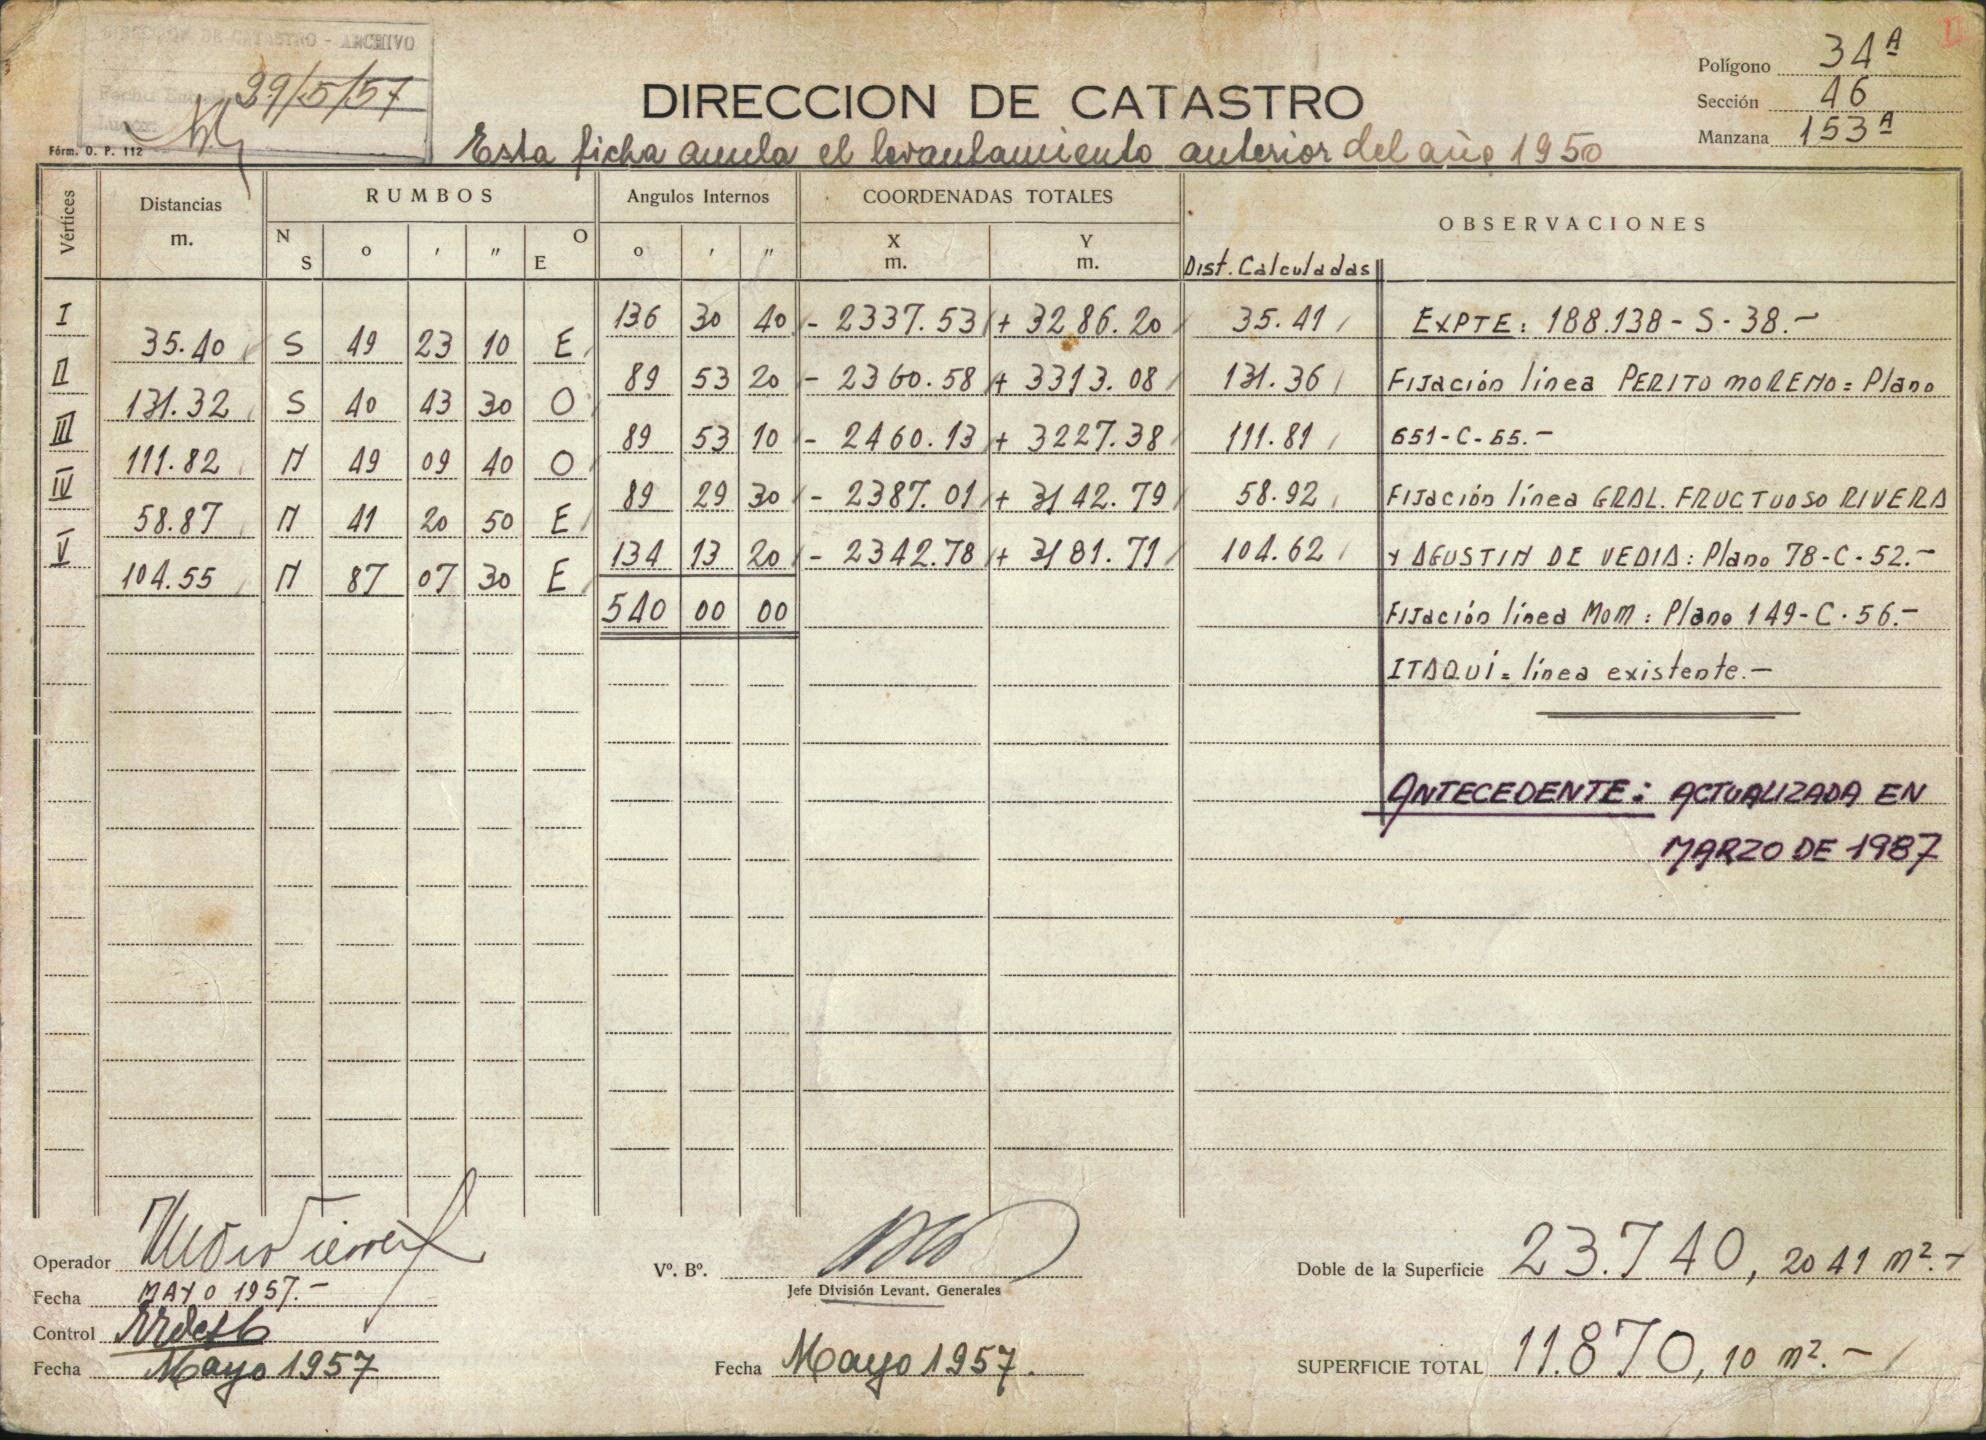 DIRECCION DE CATASTRO - ARCHIVO
29/5/57
Fórm. O. P. 112
DIRECCION DE CATASTRO
Esta ficha anula el levantamiento anterior del año 1950
Polígono 34ª
Sección 46
Manzana 153ª
Vértices
Distancias
m.
RUMBOS
N S
o
,
"
E O
Angulos Internos
o
,
"
COORDENADAS TOTALES
X
m.
Y
m.
Dist. Calculadas
OBSERVACIONES
I 136 30 40 - 2337.53 + 3286.20 35.41 EXPTE: 188.138 - S - 38.-
35.40 S 49 23 10 E
II 89 53 20 - 2360.58 + 3313.08 131.36 Fijación línea PERITO MORENO = Plano
131.32 S 40 43 30 O
III 89 53 10 - 2460.13 + 3227.38 111.81 651-C-55.-
111.82 N 49 09 40 O
IV 89 29 30 - 2387.01 + 3142.79 58.92 Fijación línea GRAL. FRUCTUOSO RIVERA
58.87 N 41 20 50 E
V 134 13 20 - 2342.78 + 3181.71 104.62 Y AGUSTIN DE VEDIA: Plano 78-C-52.-
104.55 N 87 07 30 E
540 00 00 Fijación línea MOM: Plano 149-C-56.-
ITAQUÍ = línea existente.-
ANTECEDENTE: ACTUALIZADA EN
MARZO DE 1987
Operador
Fecha MAYO 1957.-
Control
Fecha Mayo 1957
Vº. Bº.
Jefe División Levant. Generales
Fecha Mayo 1957.
Doble de la Superficie 23.740, 2041 m².-
SUPERFICIE TOTAL 11.870, 10 m².-